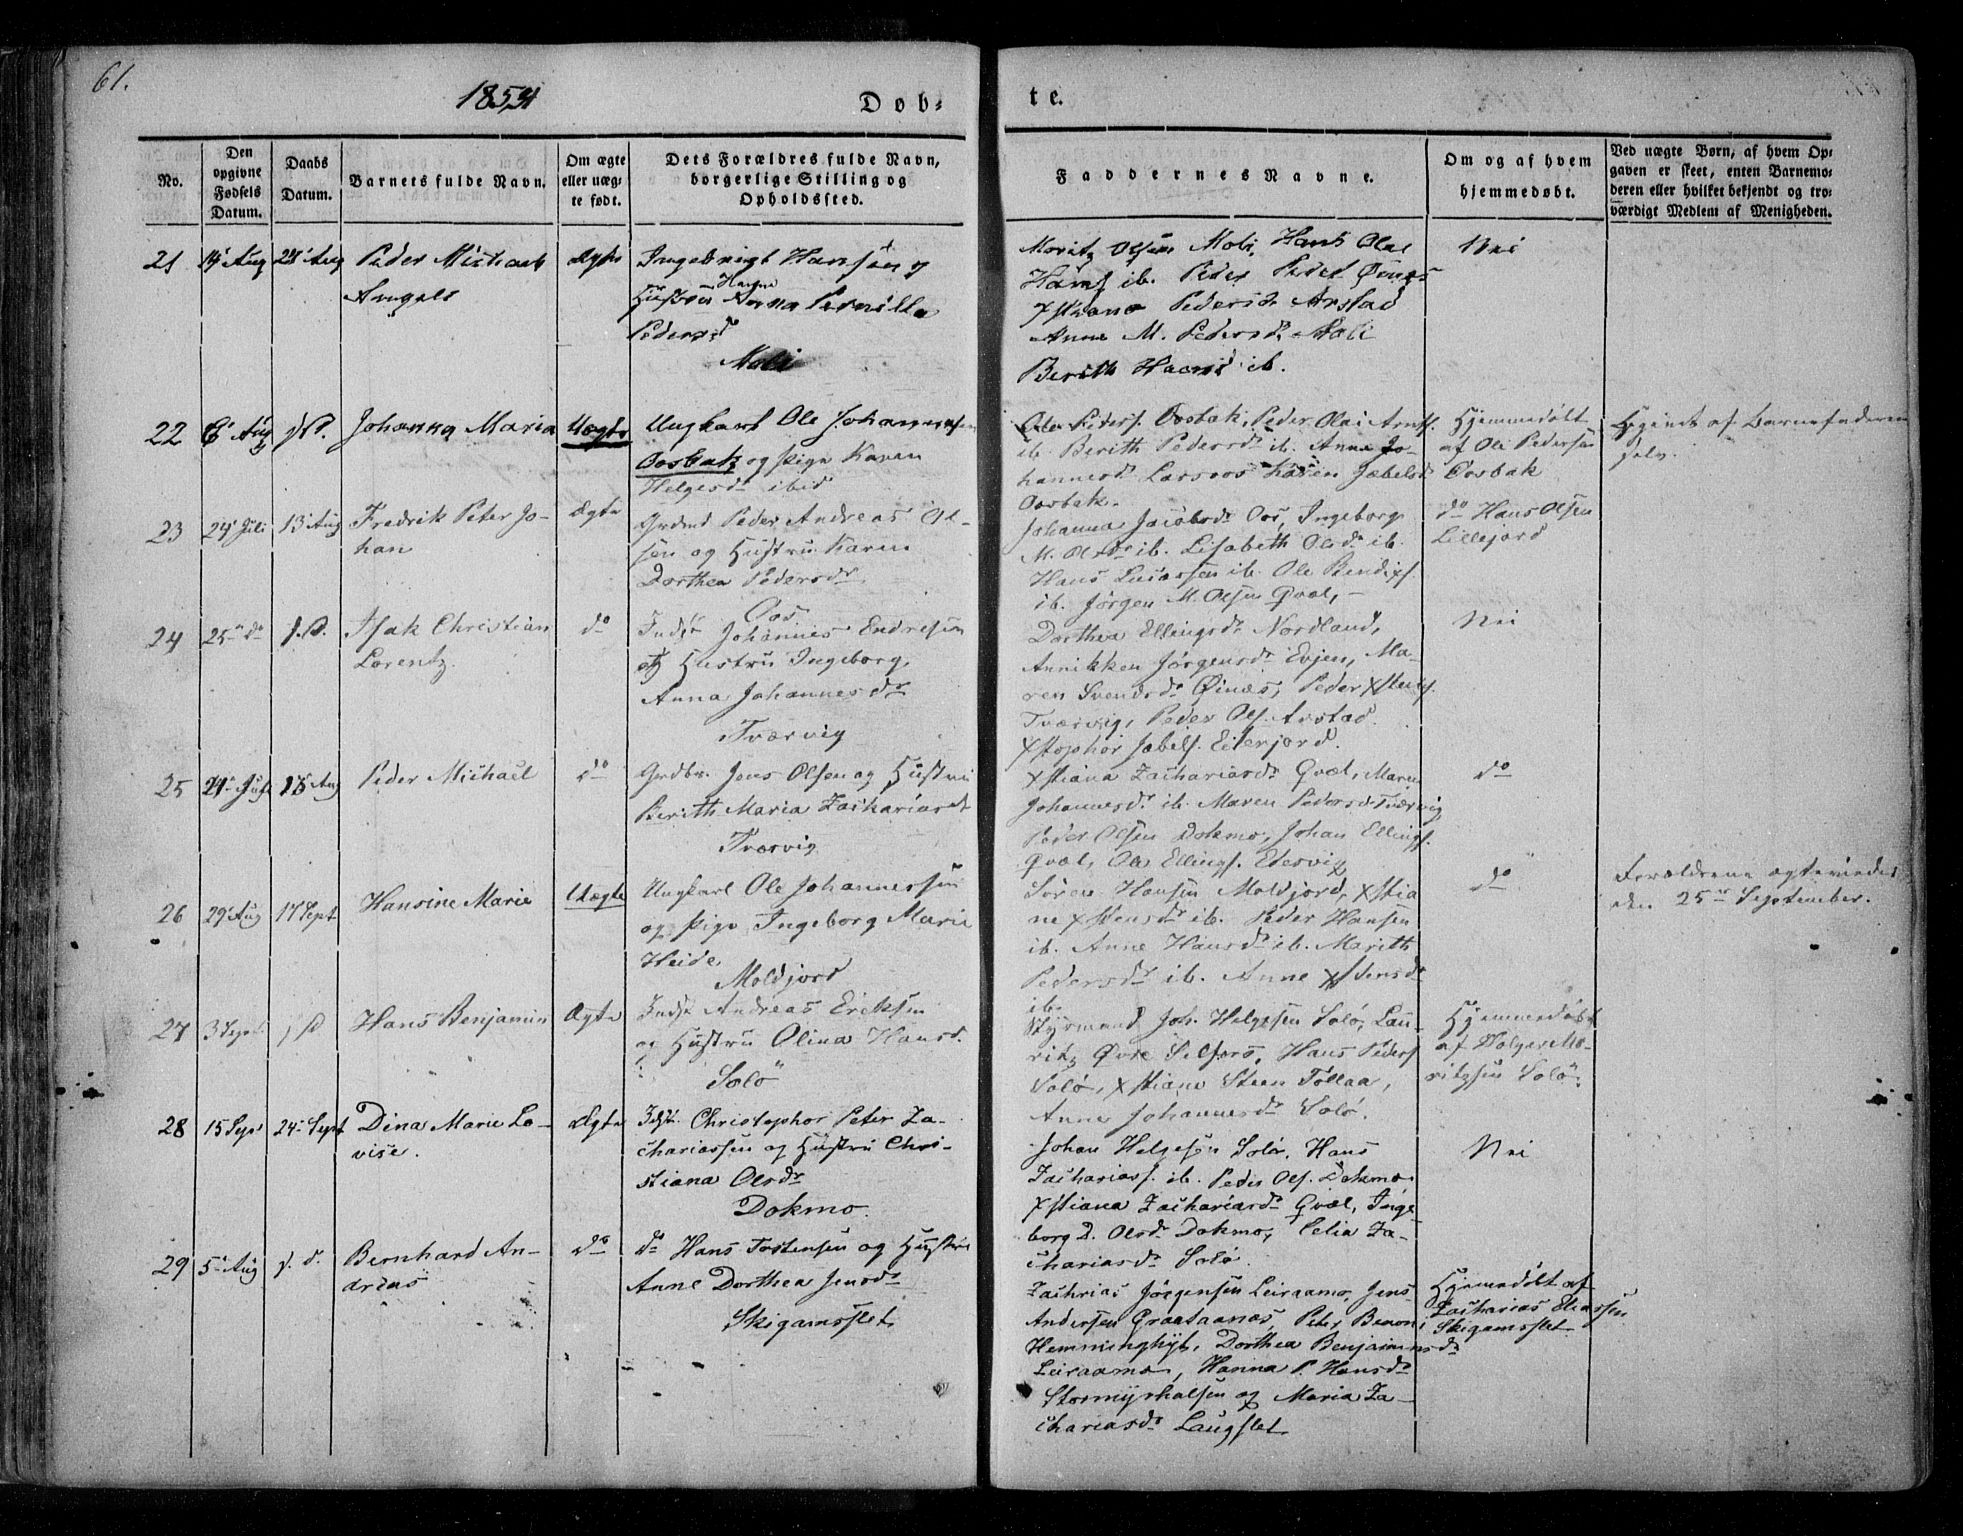 61.
1854
Døb-
te.
No.
Den opgivne Fødsels Datum.
Daabs Datum.
Barnets fulde Navn.
Om ægte eller uægte født.
Dets Forældres fulde Navn, borgerlige Stilling og Opholdssted.
Faddernes Navne.
Om og af hvem hjemmedøbt.
Ved uægte Børn, af hvem Opgaven er skeet, enten Barnemoderen eller hvilket bekjendt og troværdigt Medlem af Menigheden.
21
Aug
Aug
Peder Michael
Angels
Ægte
Ingebrigt Hansen og
Hustru Hanna Pernilla
Pedersd
Mobi
Moritz Olsen Mobi, Hans Olai
Hans ib. Peder Øines
Xstiane Pedersd. Arstad
Anne M. Pedersdr.
Berith Hansd ib.
Nei
22
6 Aug
s.D.
Johanna Maria
Uægte
Ungkarl Ole Johannessen
Oosbak og Pige Karen
Helgesdr ibid
Ole Peders. Oosbak, Peder Olai Arntss.
ib. Berith Pedersdr ib. Anna Jo-
hannesd. Larsoos Karen Jæbelsd.
Oosbak.
Hjemmedøbt
af Ole Pedersen
Oosbak
af Barnefaderen
selv.
23
24 Juli
13 Aug
Fredrik Peter Jo-
han
Ægte
Grdmd Peder Andreas Ol-
sen og Hustru Karen
Dorthea Pedersdr
Oos
Johanna Jacobsdr Oos, Ingeborg
M. Olsdr ib. Lisabeth Olsdr ib.
Hans Lucassen ib. Ole Bendixs.
ib. Jørgen M. Olsen Qvæl,
do Hans Olsen
Lillejord
24
25 do
s.D.
Isak Christian
Lorentz.
do
Indst Johannes Endresen
og Hustru Ingeborg
Anna Johannesdr
Tværvig
Dorthea Ellingsdr Nordland,
Annikken Jørgensdr Evjen, Ma-
ren Svendsdr Øinæs, Peder Xstens.
Tværvig, Peder Ols. Arstad.
Xstophor Jabels. Eiterjord.
Nei
25
Aug
Peder Michael
do
Grdbr. Jens Olsen og Hustru
Berith Maria Zachariasd
Tværvig
Xstiana Zachariasdr Qvæl, Maren
Johannesdr ib. Maren Pedersdr Tværvig
Peder Olsen Dokmo, Johan Ellings.
Qvæl, Ole Ellings. Etervig
do
26
29 Aug
17 Sept
Hansine Marie
Uægte
Ungkarl Ole Johannessen
og Pige Ingeborg Marie
Heide,
Moldjord
Søren Hansen Moldjord, Xstia
ne Xstensdr ib. Peder Hansen
ib. Anne Hansdr ib. Marith
Pedersdr ib. Anne Xstensdr
ib.
do
Forældrene ægteviedes
den 25de September.
27
3 Sept
s.D
Hans Benjamin
Ægte
Indst Andreas Eriksen
og Hustru Olina Hansd.
Solø
Styrmand Joh. Helgesen Solø, Lau-
ritz Øvre Selfors, Hans Peders
Solø, Xstiane Steen Tollaa,
Anne Johannesdr Solø.
Hjemmedøbt
af Holger Mo-
ritzsen Solø.
28
15 Sept
24 Sept
Dina Marie Lo-
vise.
Ægte
Idst. Christopher Peter Za-
chariassen og Hustru Chri-
stiana Olsdr
Dokmo.
Johan Helgesen Solø, Hans
Zacharias. ib. Peder Ols. Dokmo
Xstiana Zachariasdr Qvæl, Inge-
borg D. Olsdr Dokmo, Celia Za-
chariasdr Solø.
Nei
29
5 Aug
s.d.
Bernhard An-
dreas
do
do Hans Tostensen og Hustru
Anne Dorthea Jensdr
Skigamsslet
Zachrias Jørgensen Leiraamo, Jens
Andersen Graataanæs, Peter Benoni
Hemminghyt, Dorthea Benjaminsdr
Leiraamo, Hanna P. Hansdr
Stormyrhalsen og Maria Za-
chariasdr Laugslet
Hjemmedøbt af
Zacharias Eliassen
Skigamsslet